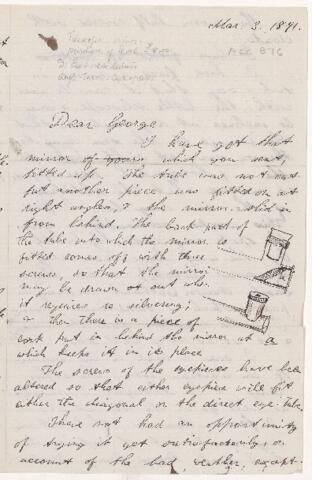 Mar 3. 1871.
Acc 876
Dear George
I have got that
mirror of yours, which you sent,
fitted up. The tube was not cut
but another piece was fitted on at
right angles, & the mirror slid in
from behind. The back part of
the tube into which the mirror is
fitted comes off with three
screws, so that the mirror
may be drawn out when
it requires re silvering;
Then there is a piece of
cork put in behind the mirror at a
which keeps it in its place
The screws of the eyepieces have been
altered so that either eyepiece will fit
either the diagonal or the direct eye-tube
I have not had an opportunity
of trying it yet satisfactorily, on
account of the bad, weather, except-